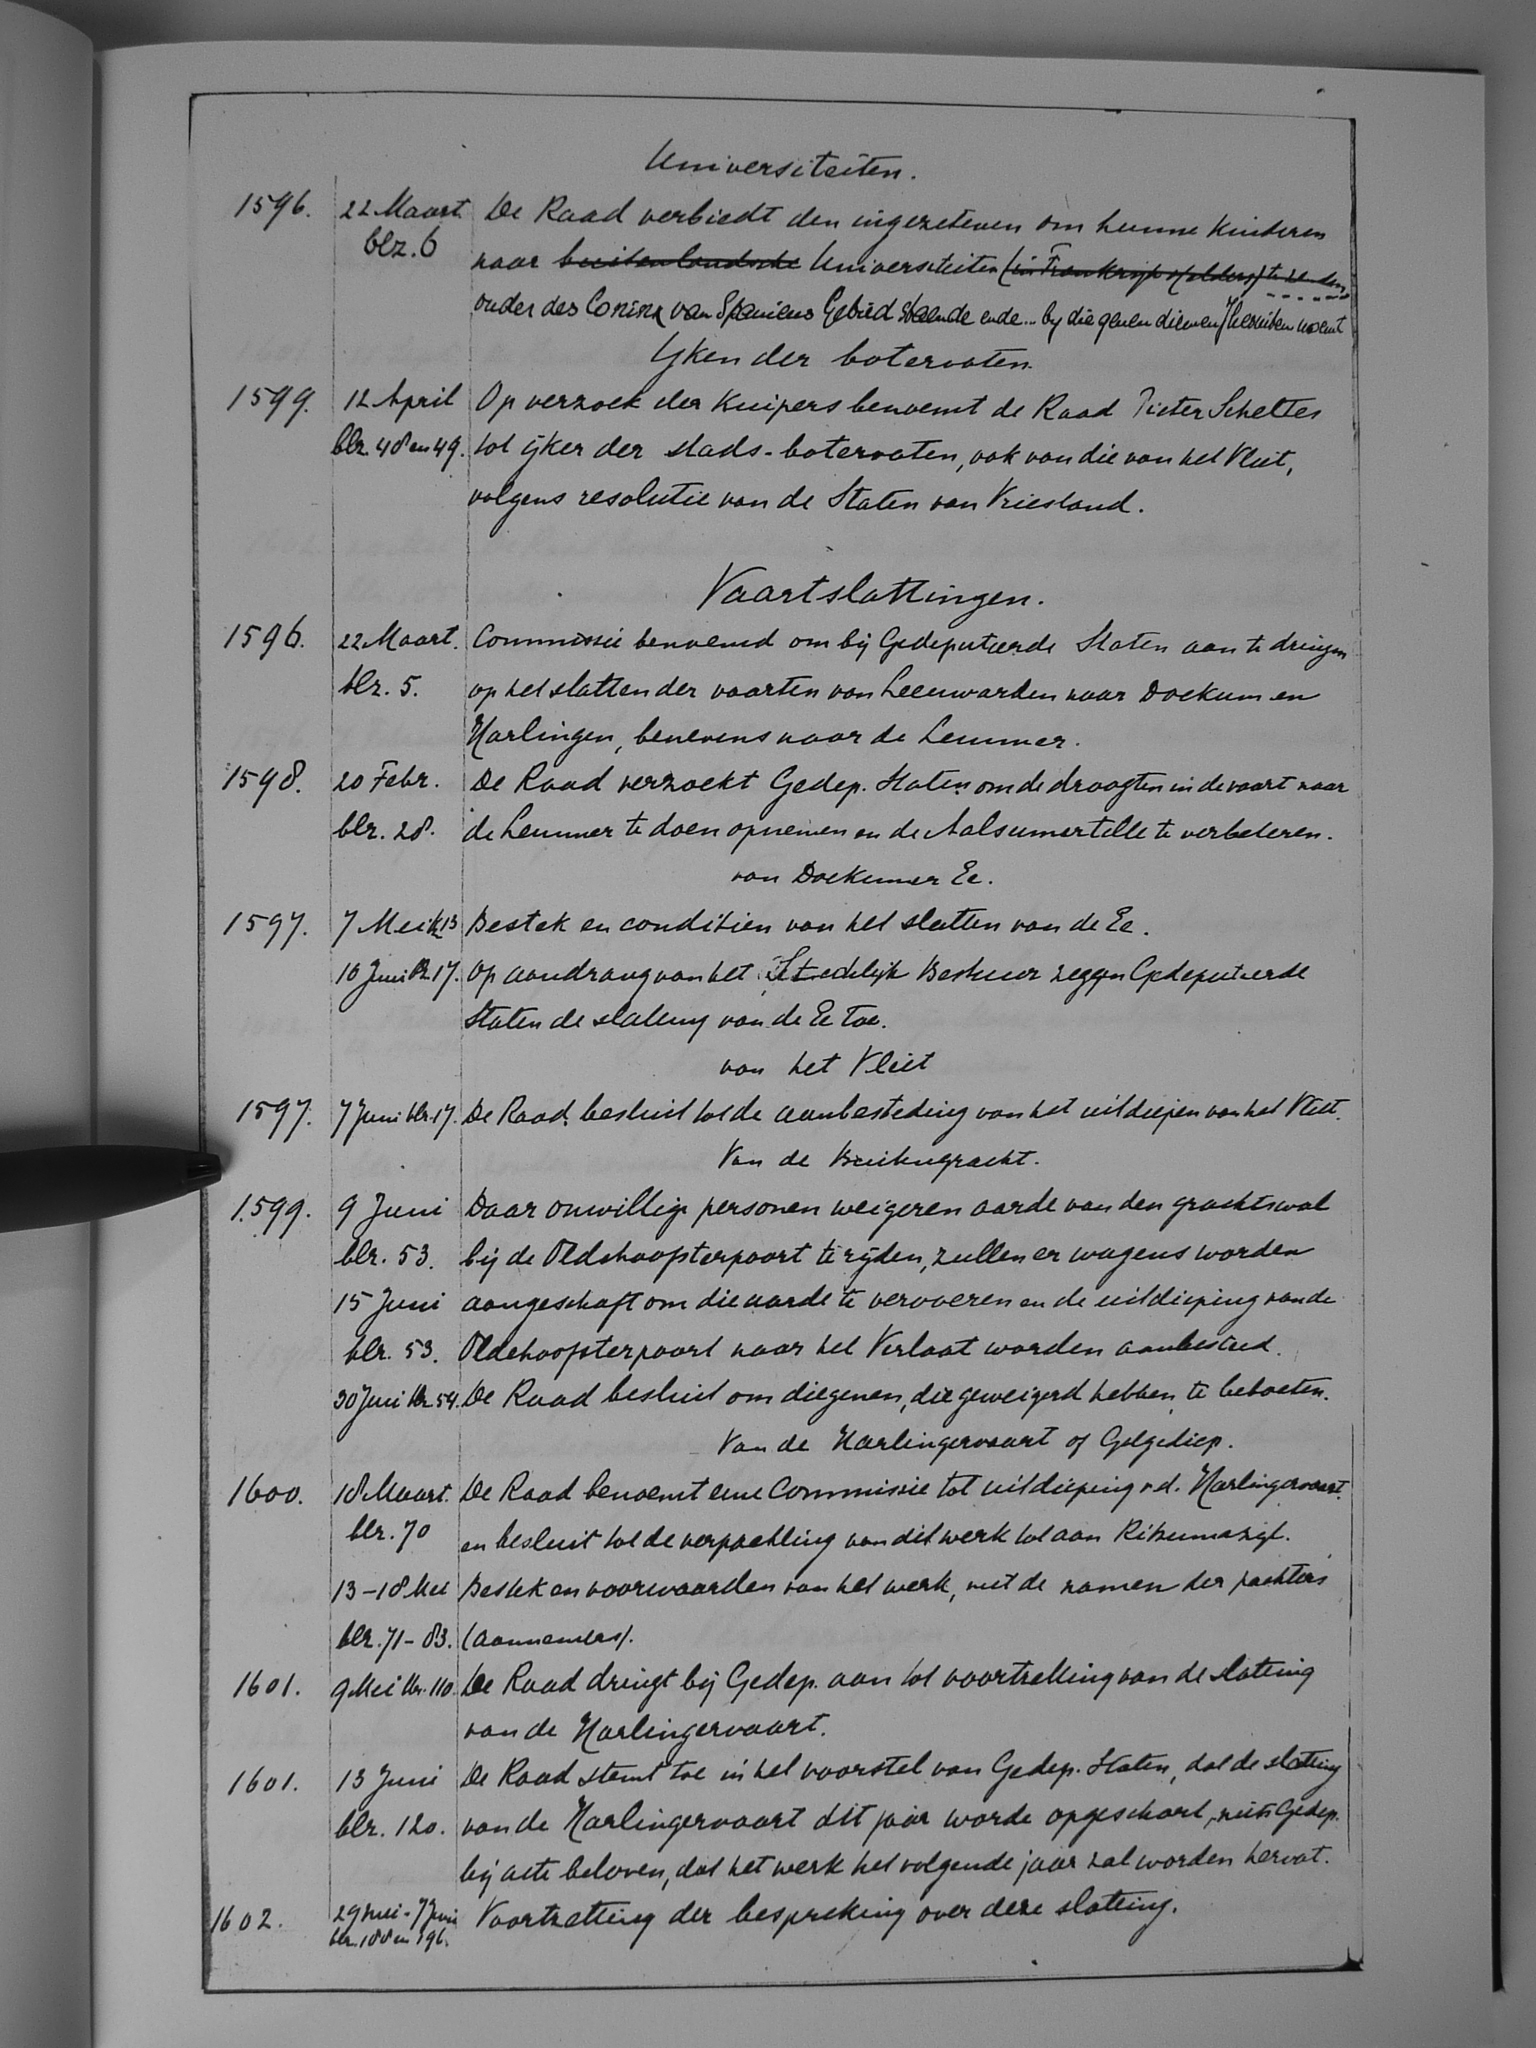 Universiteiten.
1596. 22 Maart. De Raad verbiedt den ingezetenen om hunne kinderen
blz. 6 naar buitenlandsche Universiteiten (in Frankrijk of elders) te zenden
onder des Conincx van Spaniens Gebied staende ende... by die genen dienen
Yken der botervaten.
1599. 12 April Op verzoek der Kuipers benoemt de Raad Pieter Scheltes
blz. 48 en 49. tot ijker der stads-botervaten, ook van die van het Vliet,
volgens resolutie van de Staten van Vriesland.
Vaartslattingen.
1596. 22 Maart. Commissie benoemd om bij Gedeputeerde Staten aan te dringen
blz. 5. op het slatten der vaarten van Leeuwarden naar Dockum en
Harlingen, benevens naar de Lemmer.
1598. 20 Febr. De Raad verzoekt Gedep. Staten om de droogten in de vaart naar
blz. 28. de Lemmer te doen opnemen en de Aalsumertille te verbeteren.
van Dockumer Ee.
1597. 7 Mei blz. 13 Bestek en conditien van het slatten van de Ee.
10 Juni blz. 17. Op aandrang van het Stedelijk Bestuur zeggen Gedeputeerde
Staten de slatting van de Ee toe.
van het Vliet
1597. 7 Juni blz. 17. De Raad besluit tot de aanbesteding van het uitdiepen van het Vliet.
Van de Buitengracht.
1599. 9 Juni Daar onwillige personen weigeren aarde van den grachtswal
blz. 53. bij de Oldehoofsterpoort te rijden, zullen er wagens worden
15 Juni aangeschaft om die aarde te vervoeren en de uitdieping van de
blz. 53. Oldehoofsterpoort naar het Verlaat worden aanbesteed.
30 Juni blz. 54. De Raad besluit om diegenen, die geweigerd hebben, te beboeten.
Van de Harlingervaart of Gelgediep.
1600. 18 Maart. De Raad benoemt eene Commissie tot uitdieping v.d. Harlingervaart.
blz. 70 en besluit tot de verpachting van dit werk tot aan Ritsumazijl.
13-18 Mei Bestek en voorwaarden van het werk, met de namen der pachters
blz. 71-83. (aannemers).
1601. 9 Mei blz. 110. De Raad dringt bij Gedep. aan tot voortzetting van de slatting
van de Harlingervaart.
1601. 13 Juni De Raad stemt toe in het voorstel van Gedep. Staten, dat de slatting
blz. 120. van de Harlingervaart dit jaar worde opgeschort, mits Gedep.
bij acte beloven, dat het werk het volgende jaar zal worden hervat.
1602. 29 Mei - 7 Juni Voortzetting der bespreking over deze slatting.
blz. 188 en 196.